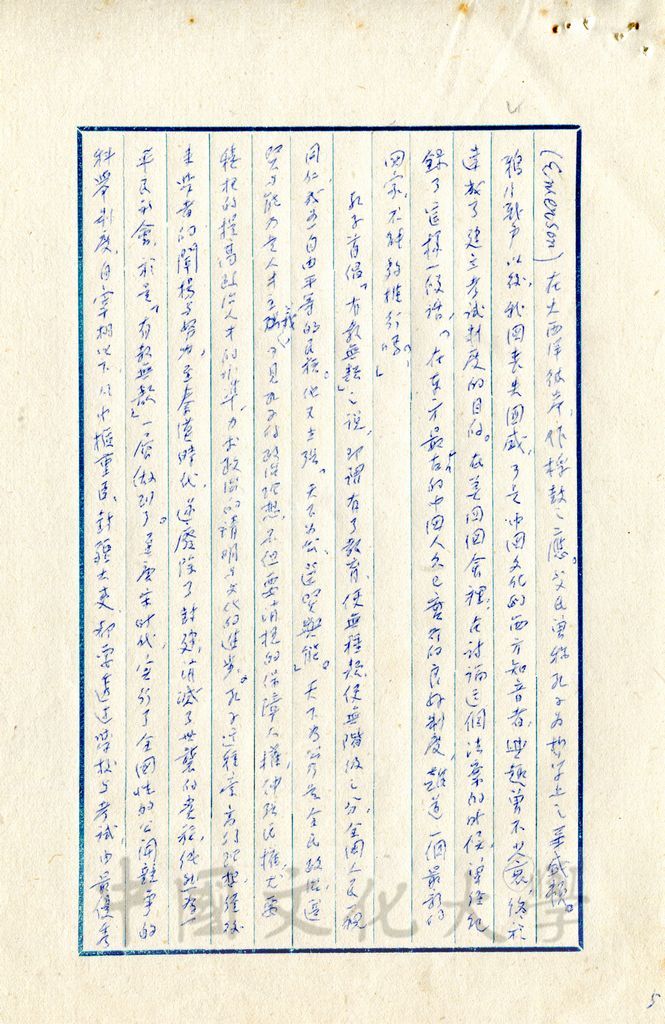 (Emerson)在大西洋彼岸，作桴鼓之應。父氏曾稱孔子為哲學上之華盛頓。
鴉片戰爭以後，我國喪失國威，可是中國文化的西方知音者，興趣曾不少衰，終於
達成了建立考試制度的目的。在美國國會裡，在討論這個法案的時候，曾經紀
錄了這樣一段話：「在東方最古的中國人久已實行的良好制度，難道一個最新的
國家，不能夠推行嗎？」
孔子首倡「有教無類」之說，即謂有了教育，便無種類，便無階級之分，全國人民一視
同仁，成為一自由平等的民族。他又主張「天下為公，選賢與能。」天下為公是全民政治，選
賢與能乃是人才主義，可見孔子的政治理想，不但要消極的保障人權，伸張民權，尤要
積極的提高政治人才的水準，力求政治的清明與文化的進步。孔子這種崇高的理想，經後
來學者的闡揚與努力，至秦漢時代，遂廢除了封建，消滅了世襲的貴族，代之以
平民社會，於是「有教無類」一層做到了。至唐宋時代，實行了全國性的公開競爭的
科舉制度，自宰相以下，以中樞重臣，封疆大吏，都要透過學校與考試，由最優秀
5
中國文化大學